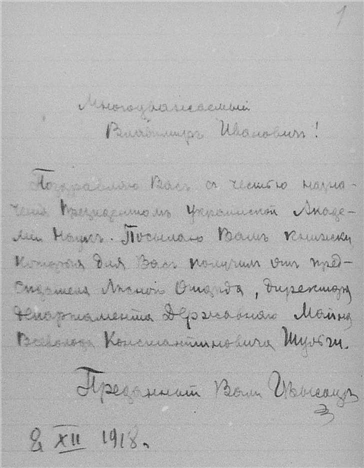 1
Многоуважаемый
Владимиръ Ивановичъ!
Поздравляю Васъ съ честью назна-
ченія Президентомъ Украинской Акаде-
міи Наукъ. Посылаю Вамъ книжку
которую для Васъ получилъ отъ пред-
сѣдателя Лѣсной, директора
Департамента Державнаго Майна
Всеволода Константиновича Шульги.
Преданный Вамъ
8 XII 1918.